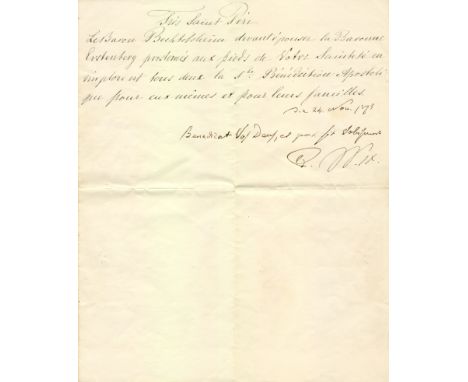 Très Saint Père
Le Baron Bechtolsheim devant épouser la Baronne
Erstenberg prosternés aux pieds de Votre Sainteté en
implorent tous deux la Ste Bénédiction Apostoli
que pour eux mêmes et pour leurs familles
24 Nov.
Benedicat Vos Deus, et
P. IX.